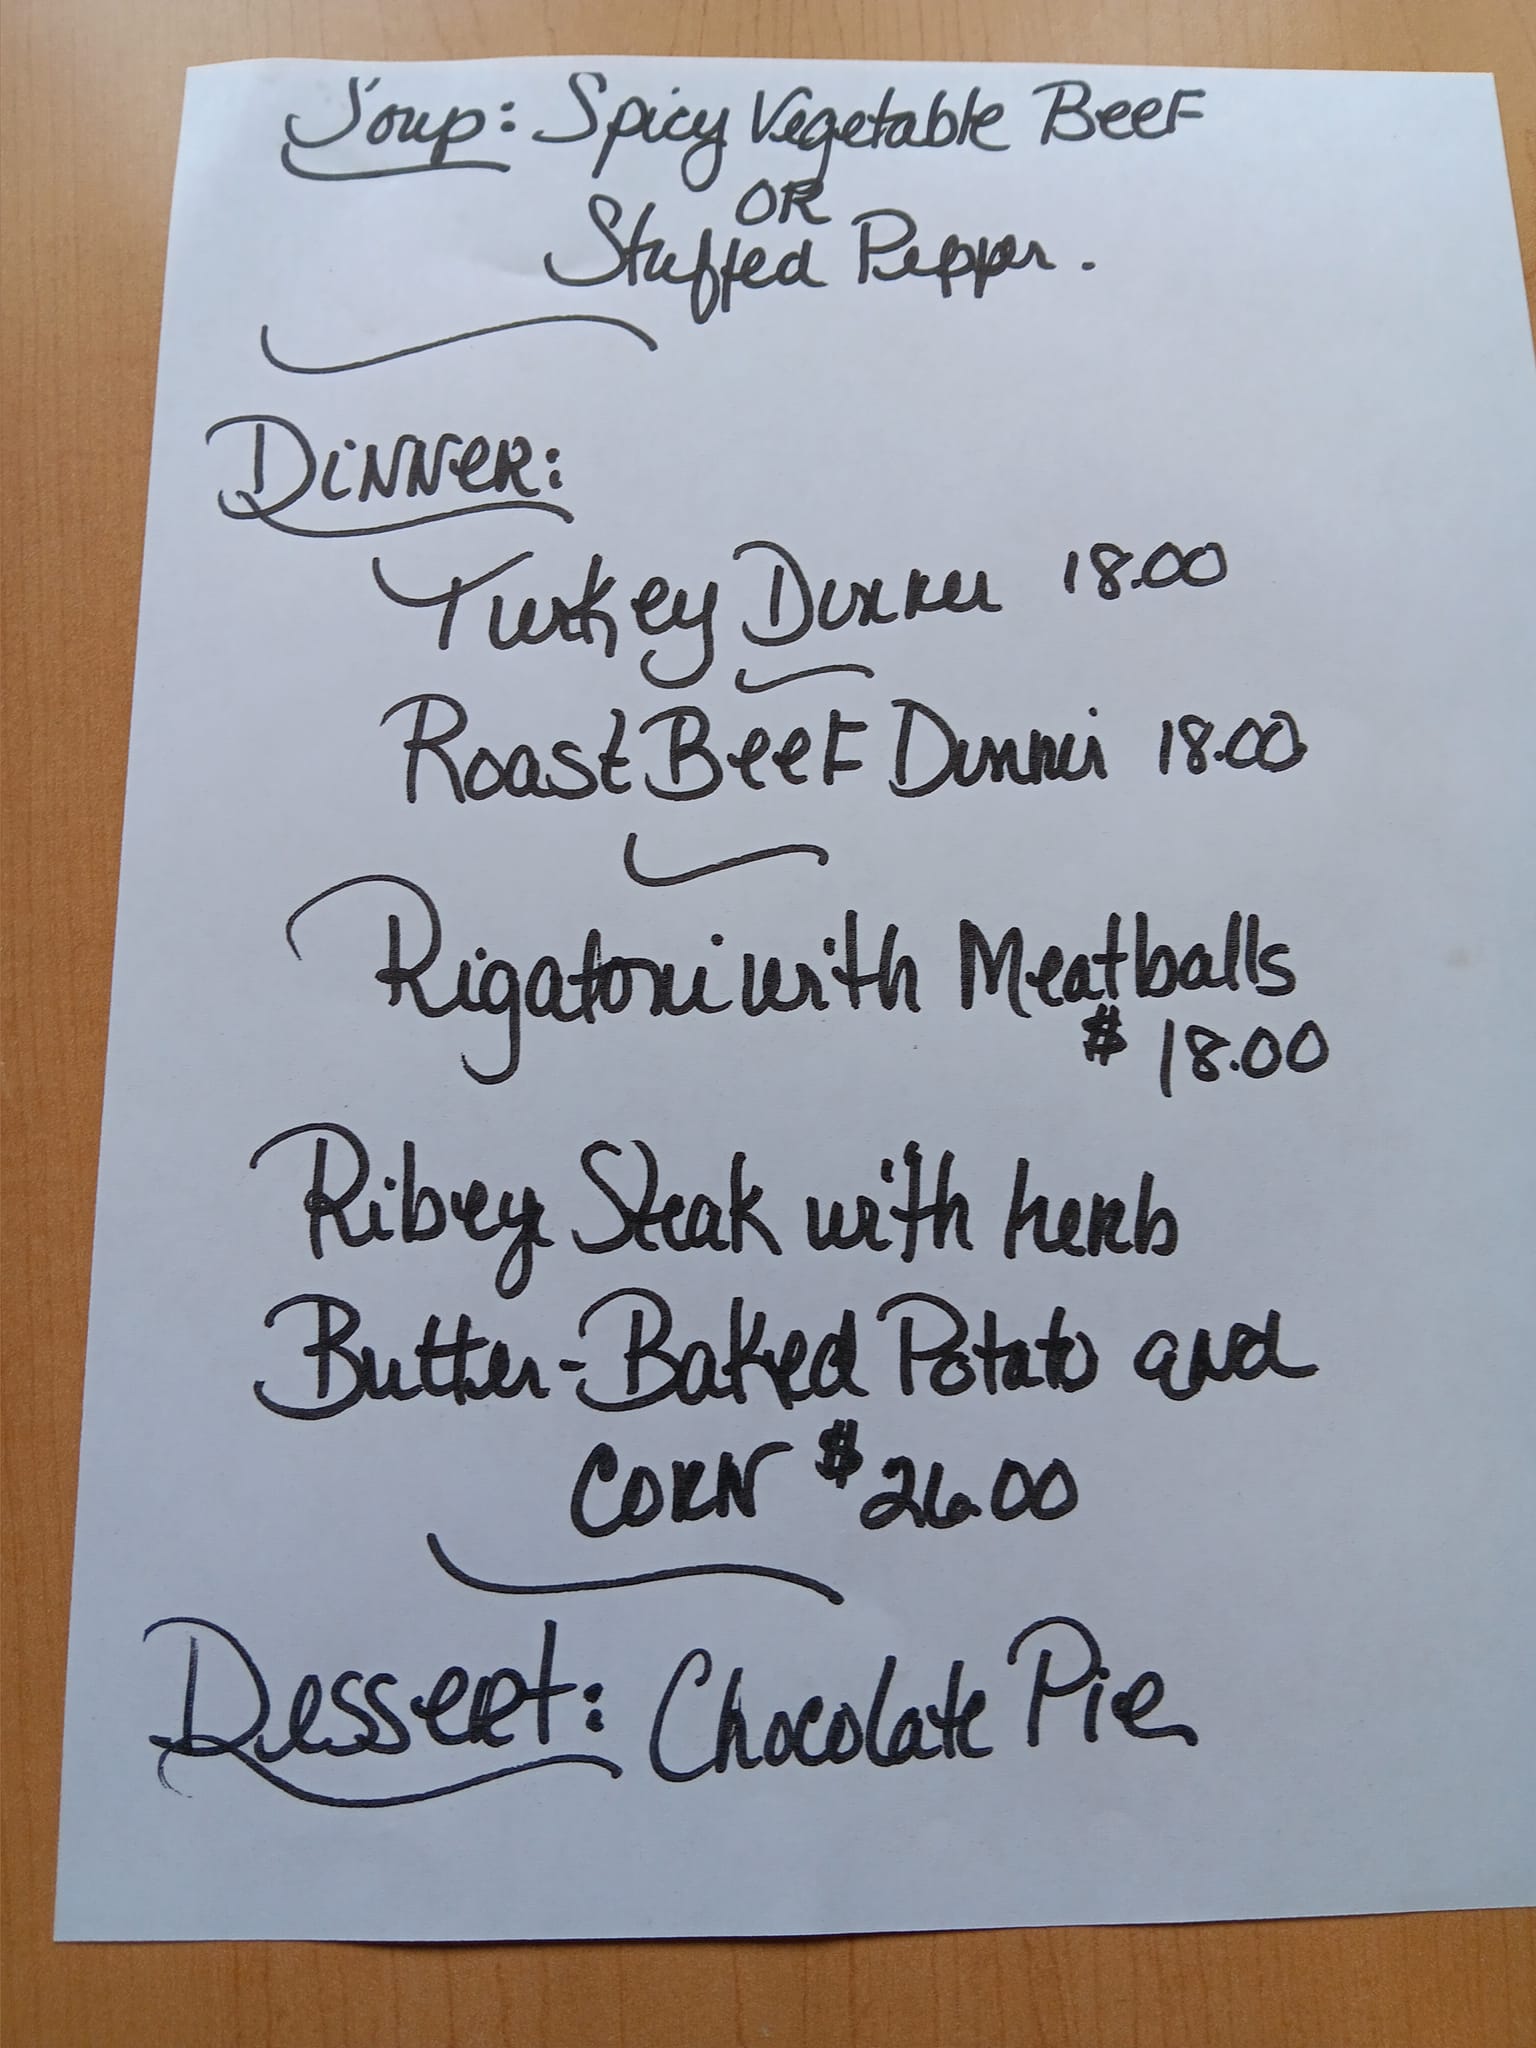 Soup: Spicy Vegetable Beef
OR
Stuffed Pepper.
Dinner:
Turkey Dinner 18.00
Roast Beef Dinner 18.00
Rigatoni with Meatballs
$ 18.00
Ribeye Steak with herb
Butter-Baked Potato and
CORN $26.00
Dessert: Chocolate Pie